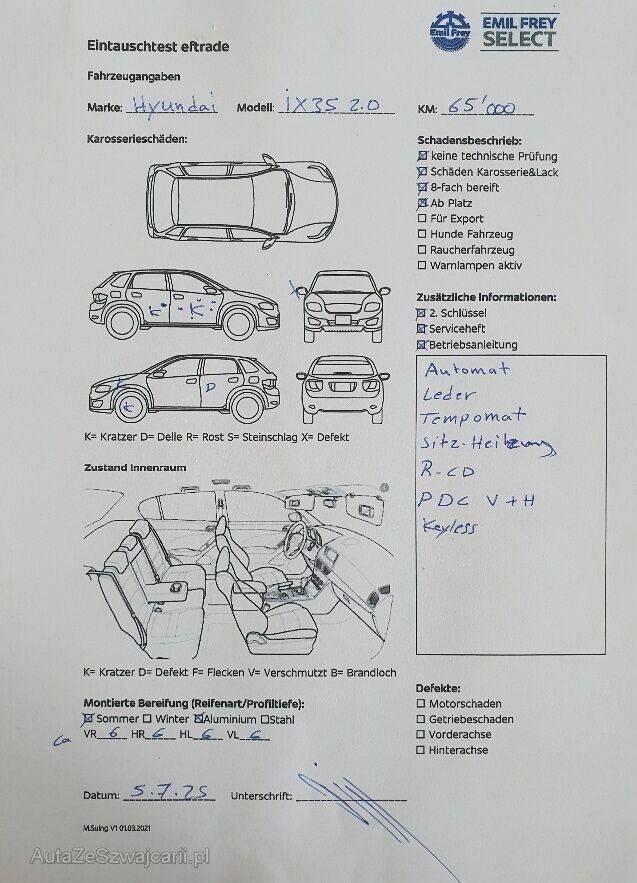 EMIL FREY
SELECT
Emil Frey
Eintauschtest eftrade
Fahrzeugangaben
Marke: Hyundai Modell: iX35 2.0 KM: 65'000
Karosserieschäden:
Schadensbeschrieb:
keine technische Prüfung
Schäden Karosserie&Lack
8-fach bereift
Ab Platz
Für Export
Hunde Fahrzeug
Raucherfahrzeug
Warnlampen aktiv
K K
X
K
K
D
K= Kratzer D= Delle R= Rost S= Steinschlag X= Defekt
Zusätzliche Informationen:
2. Schlüssel
Serviceheft
Betriebsanleitung
Automat
Leder
Tempomat
Sitz-Heitzung
R-CD
PDC V+H
Keyless
Zustand Innenraum
K= Kratzer D= Defekt F= Flecken V= Verschmutzt B= Brandloch
Montierte Bereifung (Reifenart/Profiltiefe):
Sommer Winter Aluminium Stahl
ca VR 6 HR 6 HL 6 VL 6
Defekte:
Motorschaden
Getriebeschaden
Vorderachse
Hinterachse
Datum: 5.7.25 Unterschrift:
M.Suing V1 01.03.2021
AutaZeSzwajcarii.pl